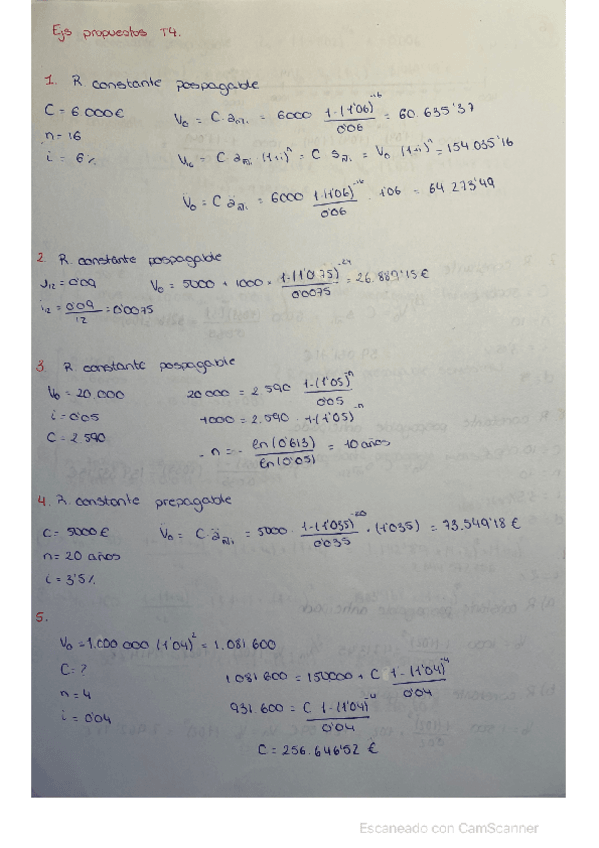 Ejs propuestos T4.
1. R. constante pospagable
C = 6.000€
n = 16
i = 6%
V₀ = C·a n̅|i = 6000 (1-(1'06)⁻¹⁶)/0'06 = 60.635'37
V₁₆ = C a n̅|i (1+i)ⁿ = C s n̅|i = V₀ (1+i)ⁿ = 154.035'16
V̈₀ = C ä n̅|i = 6000 (1-(1'06)⁻¹⁶)/0'06 · 1'06 = 64.273'49
2. R. constante pospagable
J₁₂ = 0'09
i₁₂ = 0'09/12 = 0'0075
V₀ = 5000 + 1000 · (1-(1'0075)⁻²⁴)/0'0075 = 26.889'15 €
3. R. constante pospagable
V₀ = 20.000
i = 0'05
C = 2.590
20.000 = 2.590 (1-(1'05)⁻ⁿ)/0'05
1000 = 2.590 · 1-(1'05)⁻ⁿ
- n = - ln(0'613)/ln(0'05) = 10 años
4. R. constante prepagable
C = 5000 €
n = 20 años
i = 3'5%
V̈₀ = C·ä n̅|i = 5000 · (1-(1'035)⁻²⁰)/0'035 · (1'035) = 73.549'18 €
5.
V₀ = 1.000.000 (1'04)² = 1.081.600
C = ?
n = 4
i = 0'04
1.081.600 = 150.000 + C (1-(1'04)⁻⁴)/0'04
931.600 = C (1-(1'04)⁻⁴)/0'04
C = 256.646'52 €
Escaneado con CamScanner